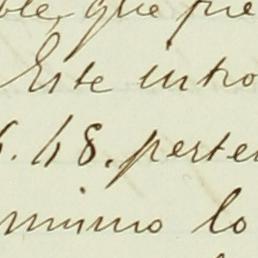 ble, que fue
Este intro
6. 48. perten
mimo lo